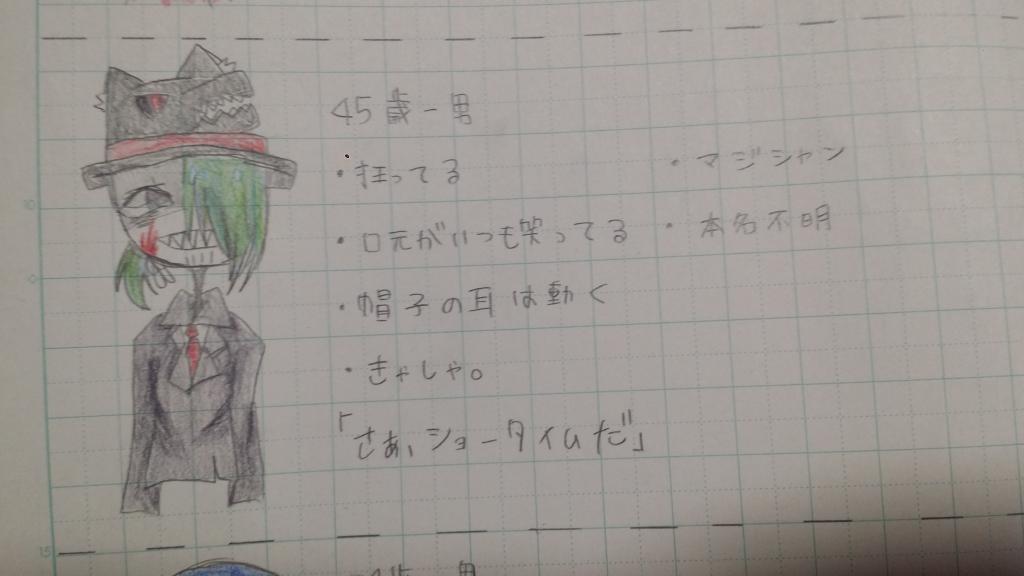 45歳-男
・狂ってる
・マジシャン
・口元がいつも笑ってる
・本名不明
・帽子の耳は動く
・きゃしゃ。
「さぁ、ショータイムだ」